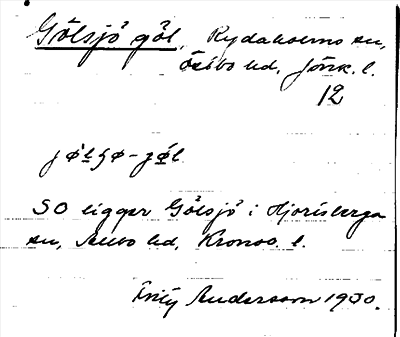 Gölsjö göl, Rydaholms sn,
Östbo hd, Jönk. l.
12
SO ligger Gölsjö i Hjortsberga
sn, Allbo hd, Kronob. l.
Fritz Andersson 1930.